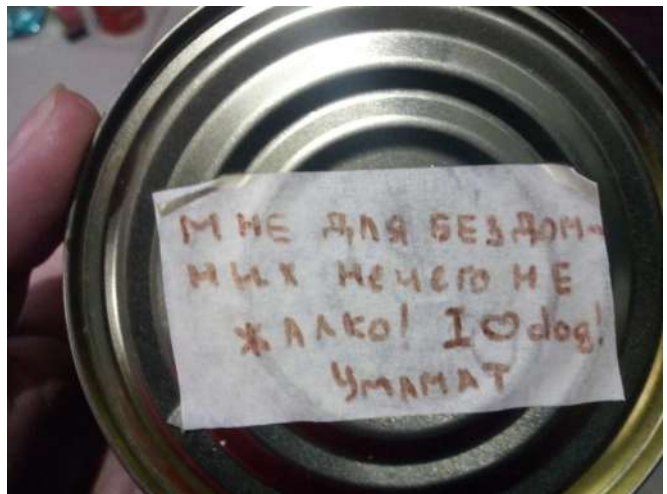 МНЕ ДЛЯ БЕЗДОМ-
НИХ НЕЧЕГО НЕ
ЖАЛКО! I ♡ dog!
УМАМАТ